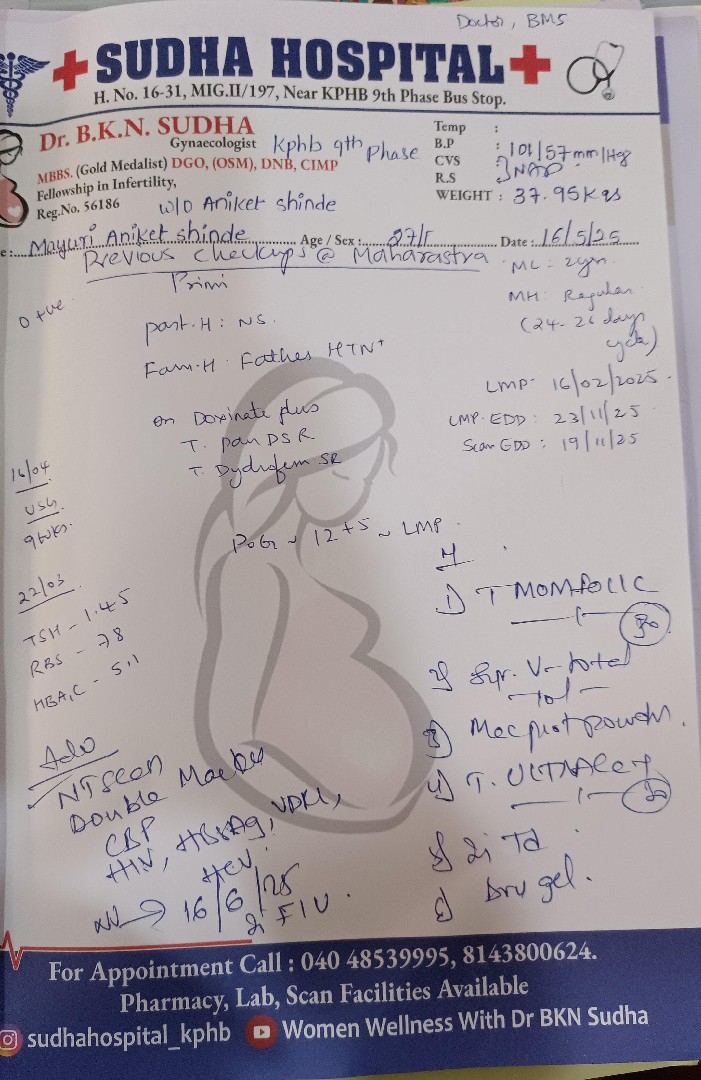 Doctor, BMS
SUDHA HOSPITAL
H. No. 16-31, MIG.II/197, Near KPHB 9th Phase Bus Stop.
Dr. B.K.N. SUDHA
Gynaecologist Kphb 9th Phase
MBBS. (Gold Medalist) DGO, (OSM), DNB, CIMP
Fellowship in Infertility,
Reg.No. 56186
W/o Aniket shinde
Temp :
B.P : 101/57mm/Hg
CVS :
R.S : NAD
WEIGHT : 37.95Kgs
e: Mayuri Aniket shinde Age / Sex : 27/F Date : 16/5/25
Previous Checkups @ Maharastra
Primi
O +ve
past.H : NS.
Fam.H : Father HTN+
ML - 2yrs
MH : Regular
(24-26 days
cycle)
LMP- 16/02/2025
LMP-EDD : 23/11/25
Scan EDD : 19/11/25
on Doxinate plus
T. Pan DSR
T. Dydrofem SR
16/04
USG
9wks.
POG ~ 12+5 ~ LMP
22/03
TSH - 1.45
RBS - 78
HBA1C - 5.1
Adv
NT Scan
Double Marker
CBP
HIV, HBsAg, VDRL,
HCV
16/6/25
1) T MOMFOLIC
30
2) Syr. V-total
3) powder.
4) T.
30
5) Inj Td
6) gel.
For Appointment Call : 040 48539995, 8143800624.
Pharmacy, Lab, Scan Facilities Available
sudhahospital_kphb Women Wellness With Dr BKN Sudha